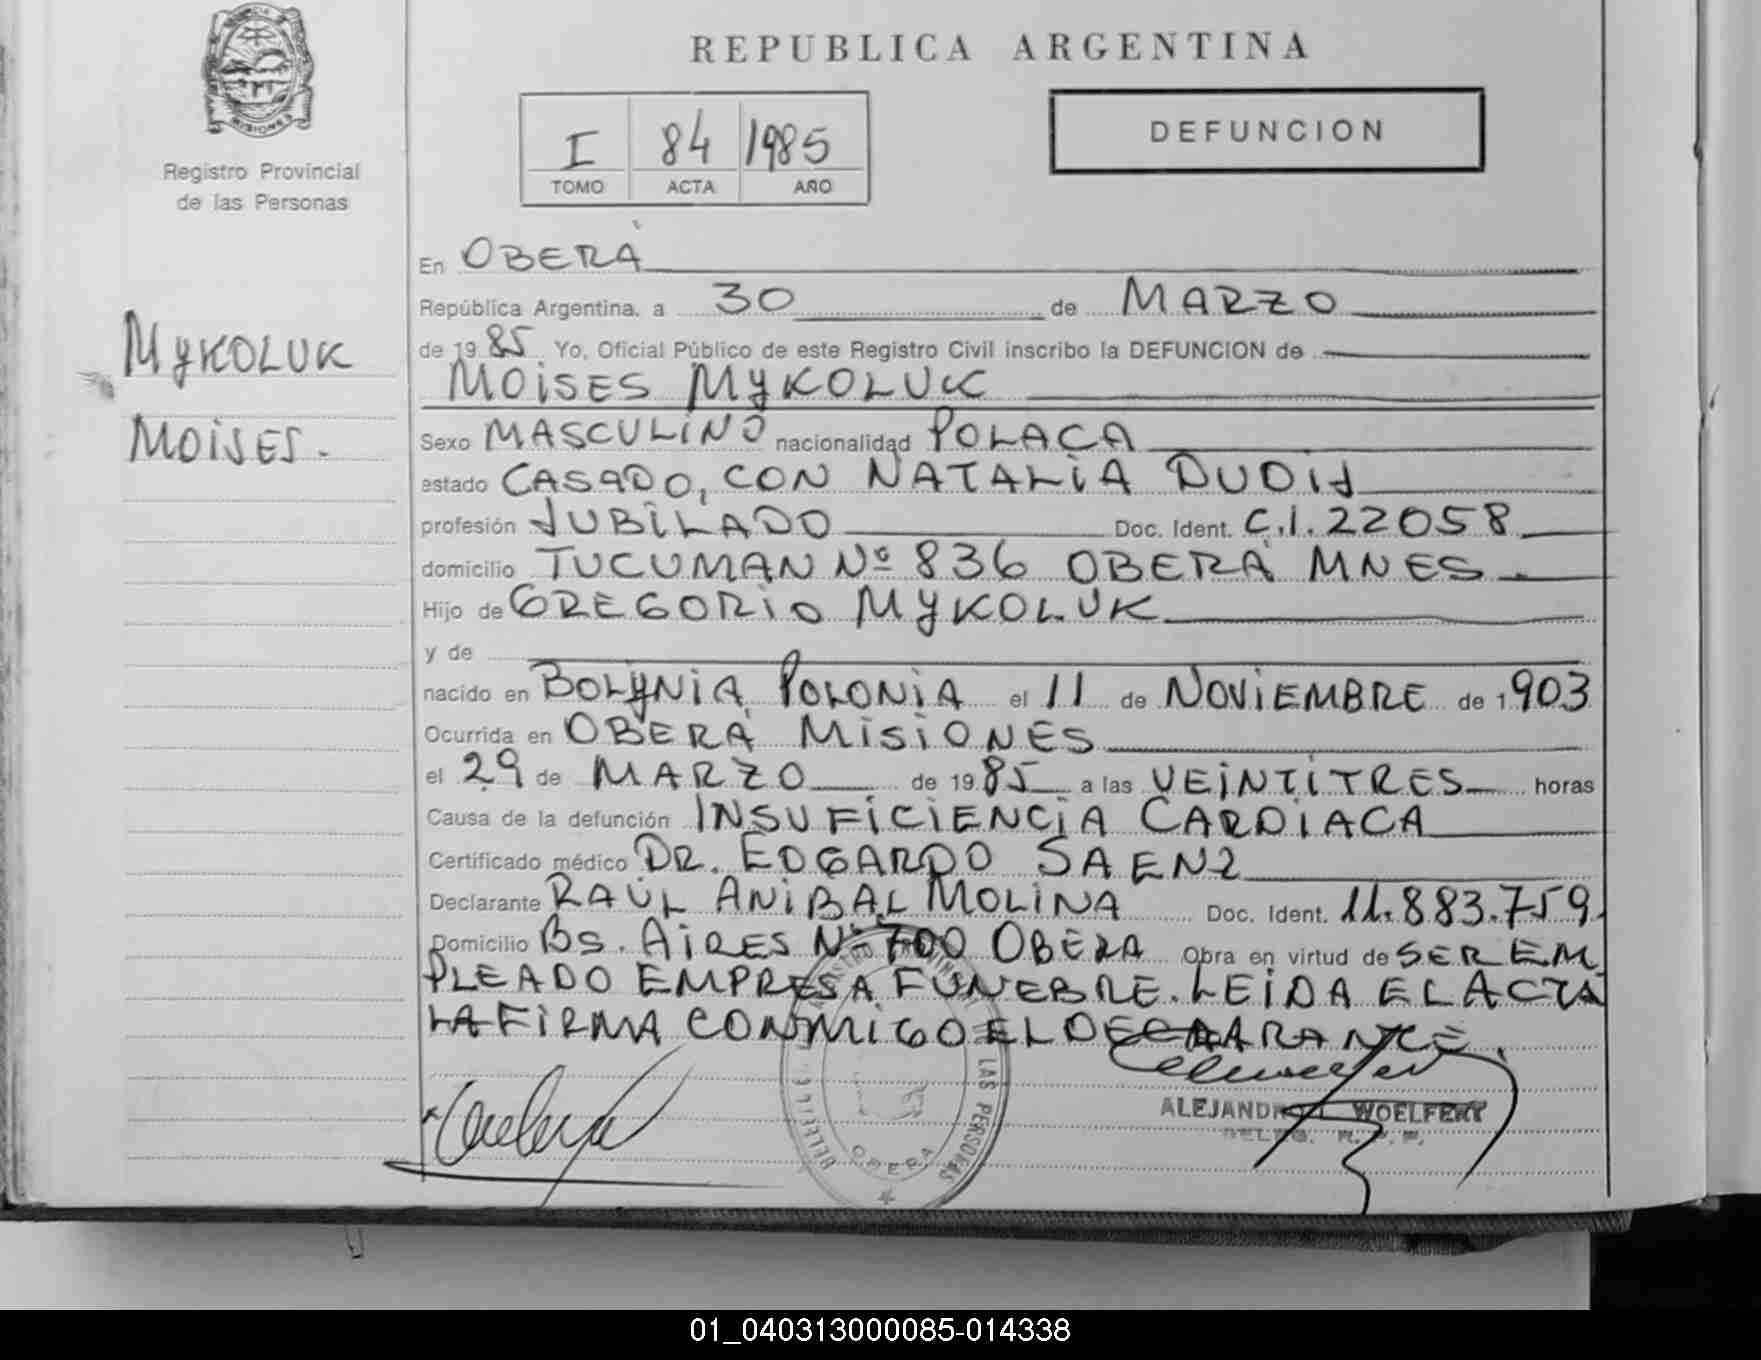 MISIONES
Registro Provincial
de las Personas
REPUBLICA ARGENTINA
I 84 1985
TOMO ACTA AÑO
DEFUNCION
En OBERÁ
República Argentina, a 30 de MARZO
de 1985 Yo, Oficial Público de este Registro Civil inscribo la DEFUNCION de
MOISES MYKOLUK
MYKOLUK
MOISES.
Sexo MASCULINO nacionalidad POLACA
estado CASADO, CON NATALIA DUDIJ
profesión JUBILADO Doc. Ident. C.I. 22058
domicilio TUCUMAN Nº 836 OBERÁ MNES.
Hijo de GREGORIO MYKOLUK
y de
nacido en BOLYNIA, POLONIA el 11 de NOVIEMBRE de 1903
Ocurrida en OBERÁ MISIONES
el 29 de MARZO de 1985 a las VEINTITRES horas
Causa de la defunción INSUFICIENCIA CARDIACA
Certificado médico DR. EDGARDO SAENZ
Declarante RAÚL ANIBAL MOLINA Doc. Ident. 11.883.759
Domicilio Bs. AIRES Nº 700 OBERA Obra en virtud de SER EM
PLEADO EMPRESA FUNEBRE. LEIDA EL ACTA
LA FIRMA CONMIGO EL DECLARANTE.
LAS PERSONAS
OBERA
ALEJANDRO WOELFERT
DELEG. R. P. P.
01_040313000085-014338